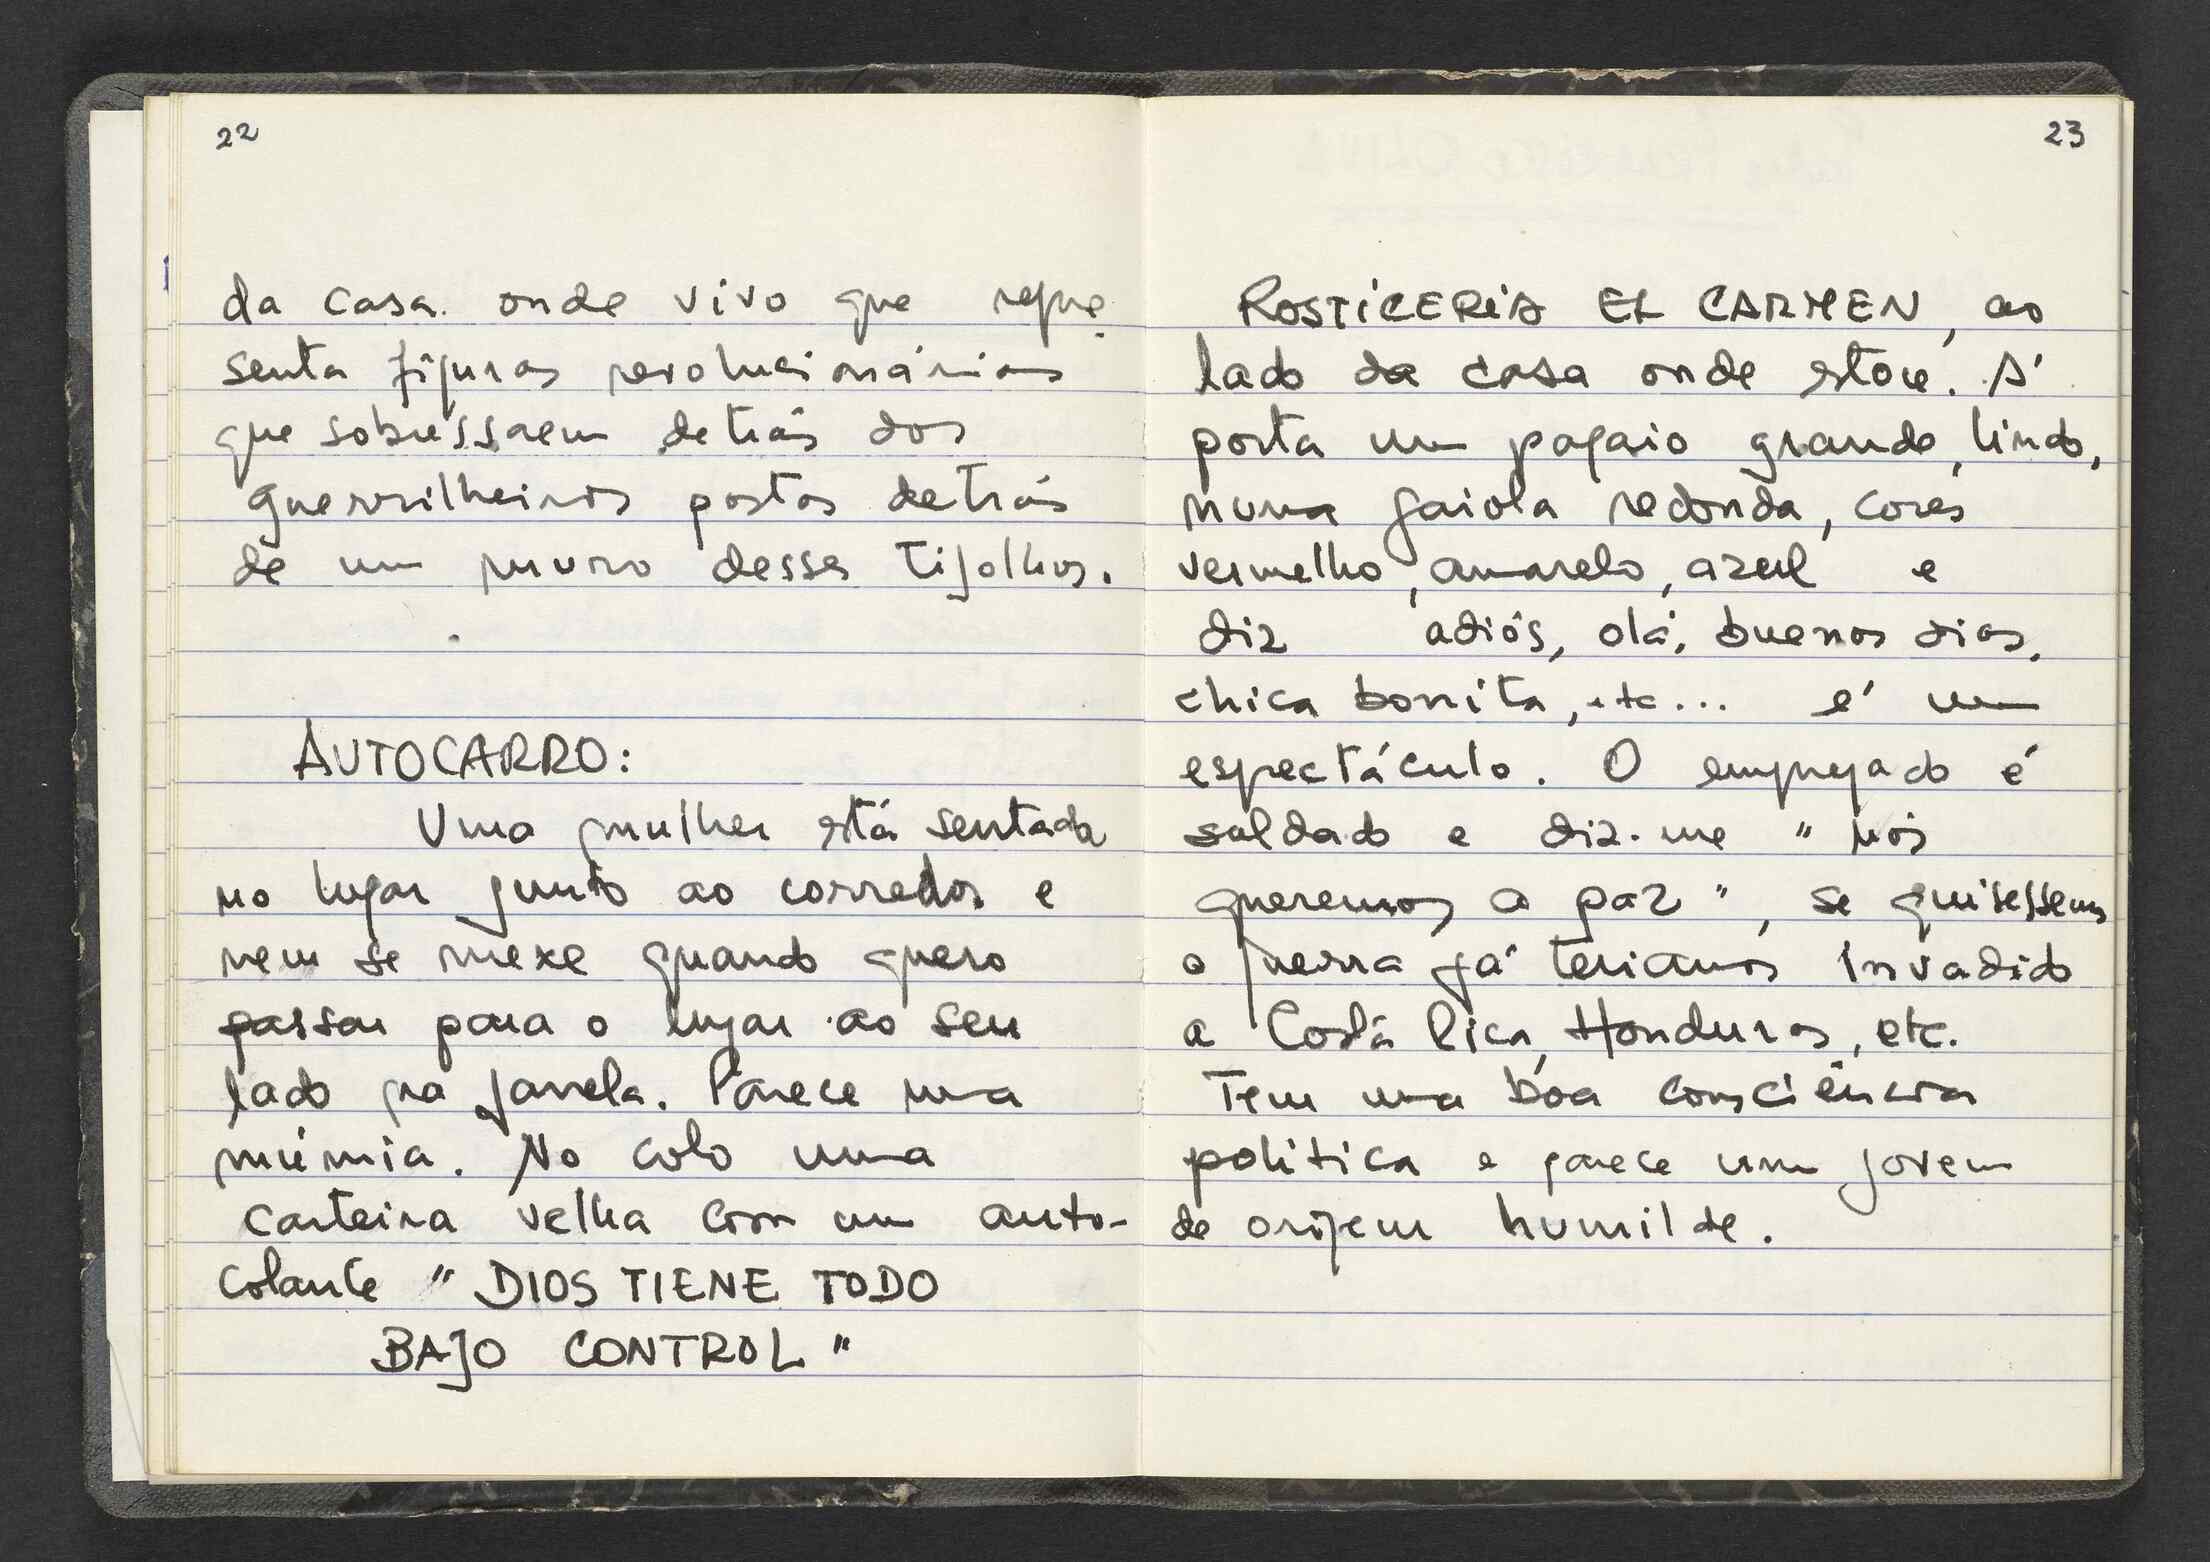 22
da casa onde vivo que repre-
senta figuras revolucionárias
que sobressaem detrás dos
guerrilheiros postos detrás
de um muro desses tijolhos.
AUTOCARRO:
Uma mulher está sentada
no lugar junto ao corredor e
nem se mexe quando quero
passar para o lugar ao seu
lado na janela. Parece uma
múmia. No colo uma
carteira velha com um auto-
colante "DIOS TIENE TODO
BAJO CONTROL"
23
ROSTICERIA EL CARMEN, ao
lado da casa onde estou. À
porta um papaio grande, lindo,
numa gaiola redonda, cores
vermelho, amarelo, azul e
diz adiós, olá, buenos dias,
chica bonita, etc... é um
espectáculo. O empregado é
soldado e diz-me "nós
queremos a paz", se quisessemos
a guerra já teriamos invadido
a Costa Rica, Honduras, etc.
Tem uma boa consciência
politica e parece um jovem
de origem humilde.